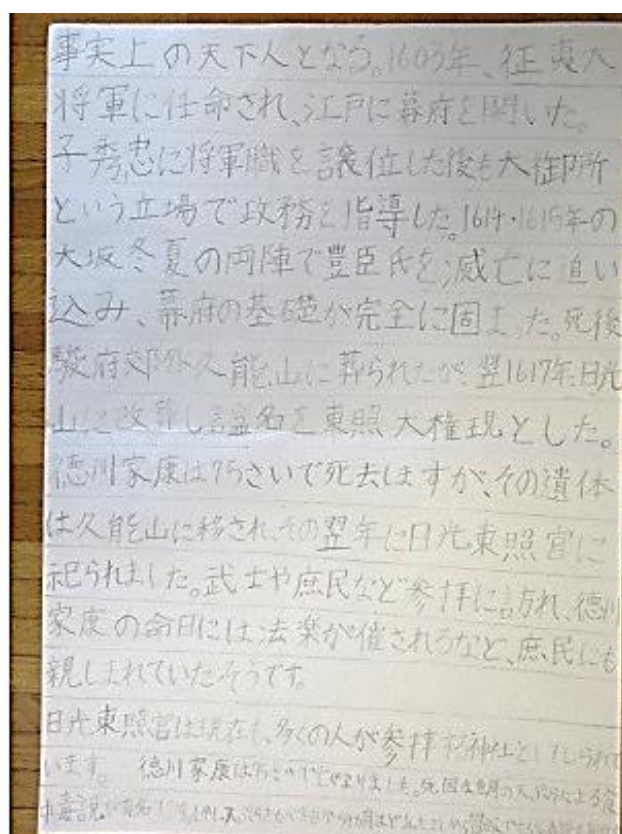 事実上の天下人となる。1603年、征夷大
将軍に任命され、江戸に幕府を開いた。
子秀忠に将軍職を譲位した後も大御所
という立場で政務を指導した。1614・1615年の
大坂冬夏の両陣で豊臣氏を滅亡に追い
込み、幕府の基礎が完全に固まった。死後
駿府郊外久能山に葬られたが、翌1617年日光
山に改葬し諡名を東照大権現とした。
徳川家康は75さいで死去しますが、その遺体
は久能山に移され、その翌年に日光東照宮に
祀られました。武士や庶民など参拝に訪れ、徳川
家康の命日には法楽が催されるなど、庶民にも
親しまれていたそうです。
日光東照宮は現在も、多くの人が参拝する神社としてしられて
います。 徳川家康は75さいで
中毒説が有名